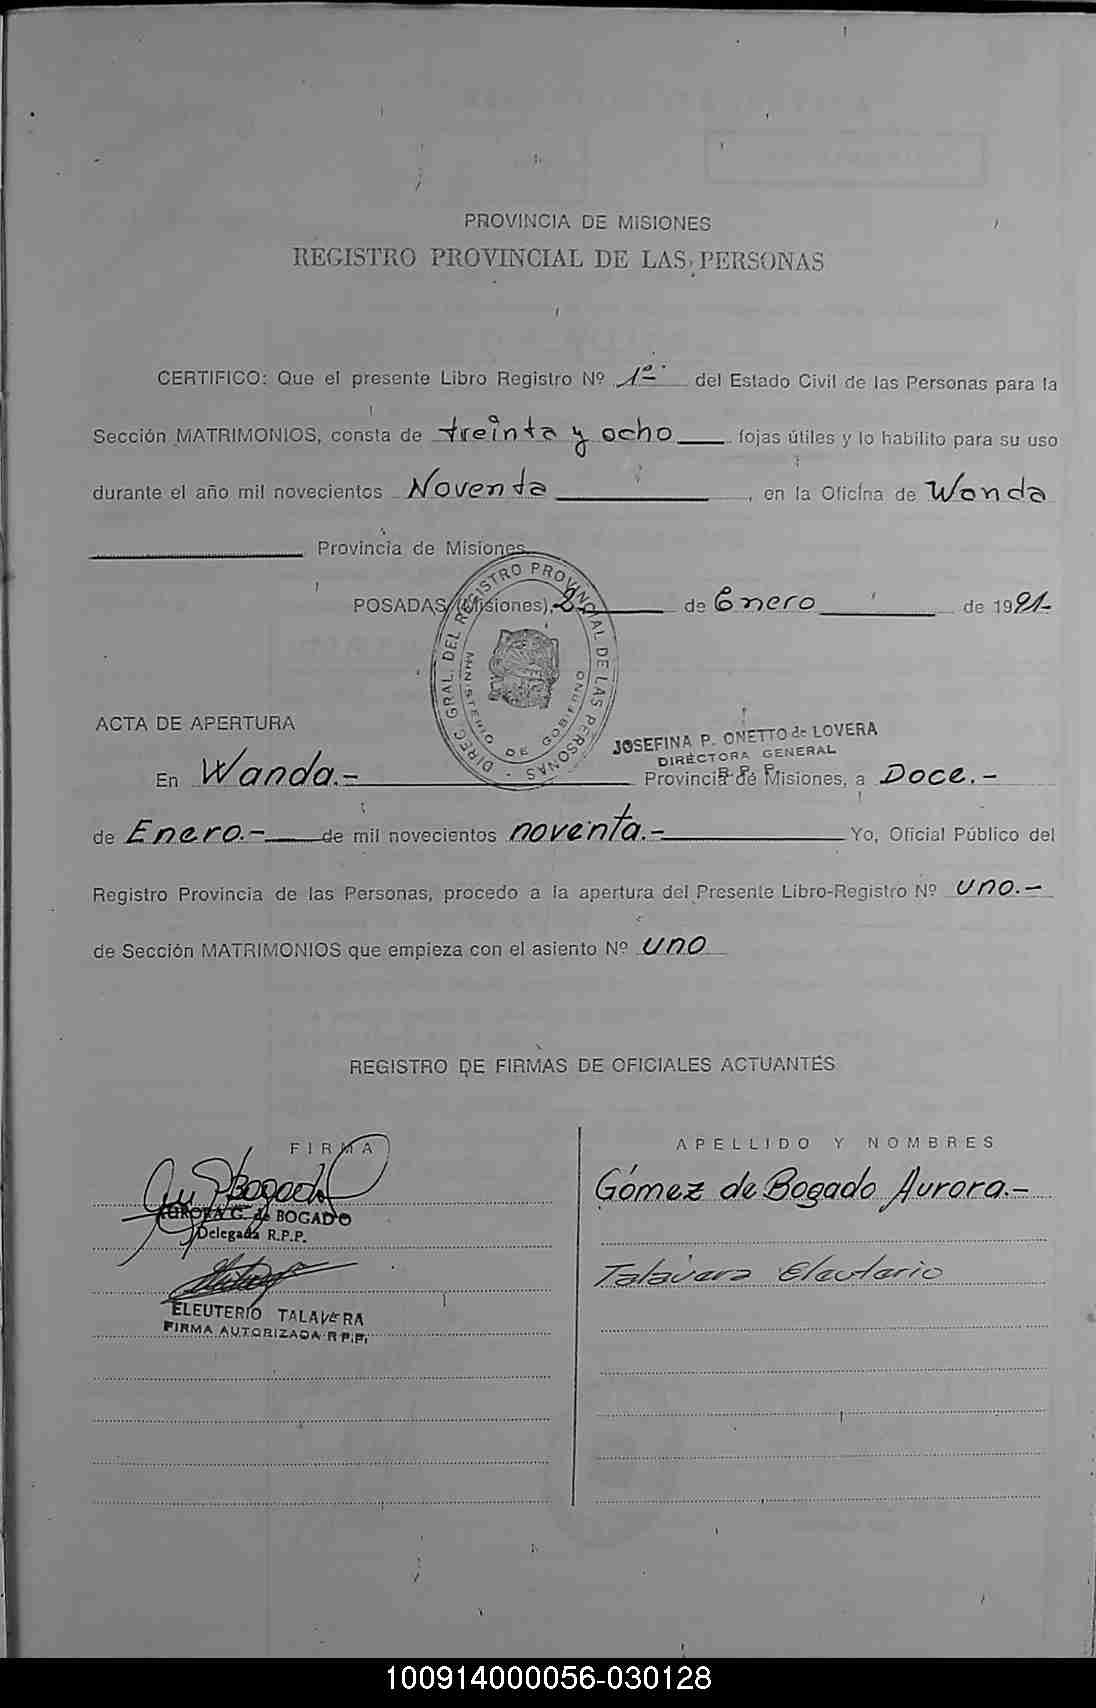 PROVINCIA DE MISIONES
REGISTRO PROVINCIAL DE LAS PERSONAS
CERTIFICO: Que el presente Libro Registro Nº 1º del Estado Civil de las Personas para la
Sección MATRIMONIOS, consta de treinta y ocho fojas útiles y lo habilito para su uso
durante el año mil novecientos Noventa, en la Oficina de Wanda
Provincia de Misiones
POSADAS (Misiones), 2 de Enero de 1991-
DIREC. GRAL. DEL REGISTRO PROVINCIAL DE LAS PERSONAS -
MINISTERIO DE GOBIERNO
ACTA DE APERTURA
JOSEFINA P. ONETTO de LOVERA
DIRECTORA GENERAL
R. P. P.
En Wanda.- Provincia de Misiones, a Doce.-
de Enero.- de mil novecientos noventa.- Yo, Oficial Público del
Registro Provincia de las Personas, procedo a la apertura del Presente Libro-Registro Nº uno.-
de Sección MATRIMONIOS que empieza con el asiento Nº uno
REGISTRO DE FIRMAS DE OFICIALES ACTUANTES
FIRMA
APELLIDO Y NOMBRES
Bogado
Gómez de Bogado Aurora.-
AURORA G. de BOGADO
Delegada R.P.P.
Talavera Eleuterio
ELEUTERIO TALAVERA
FIRMA AUTORIZADA R.P.P.
100914000056-030128